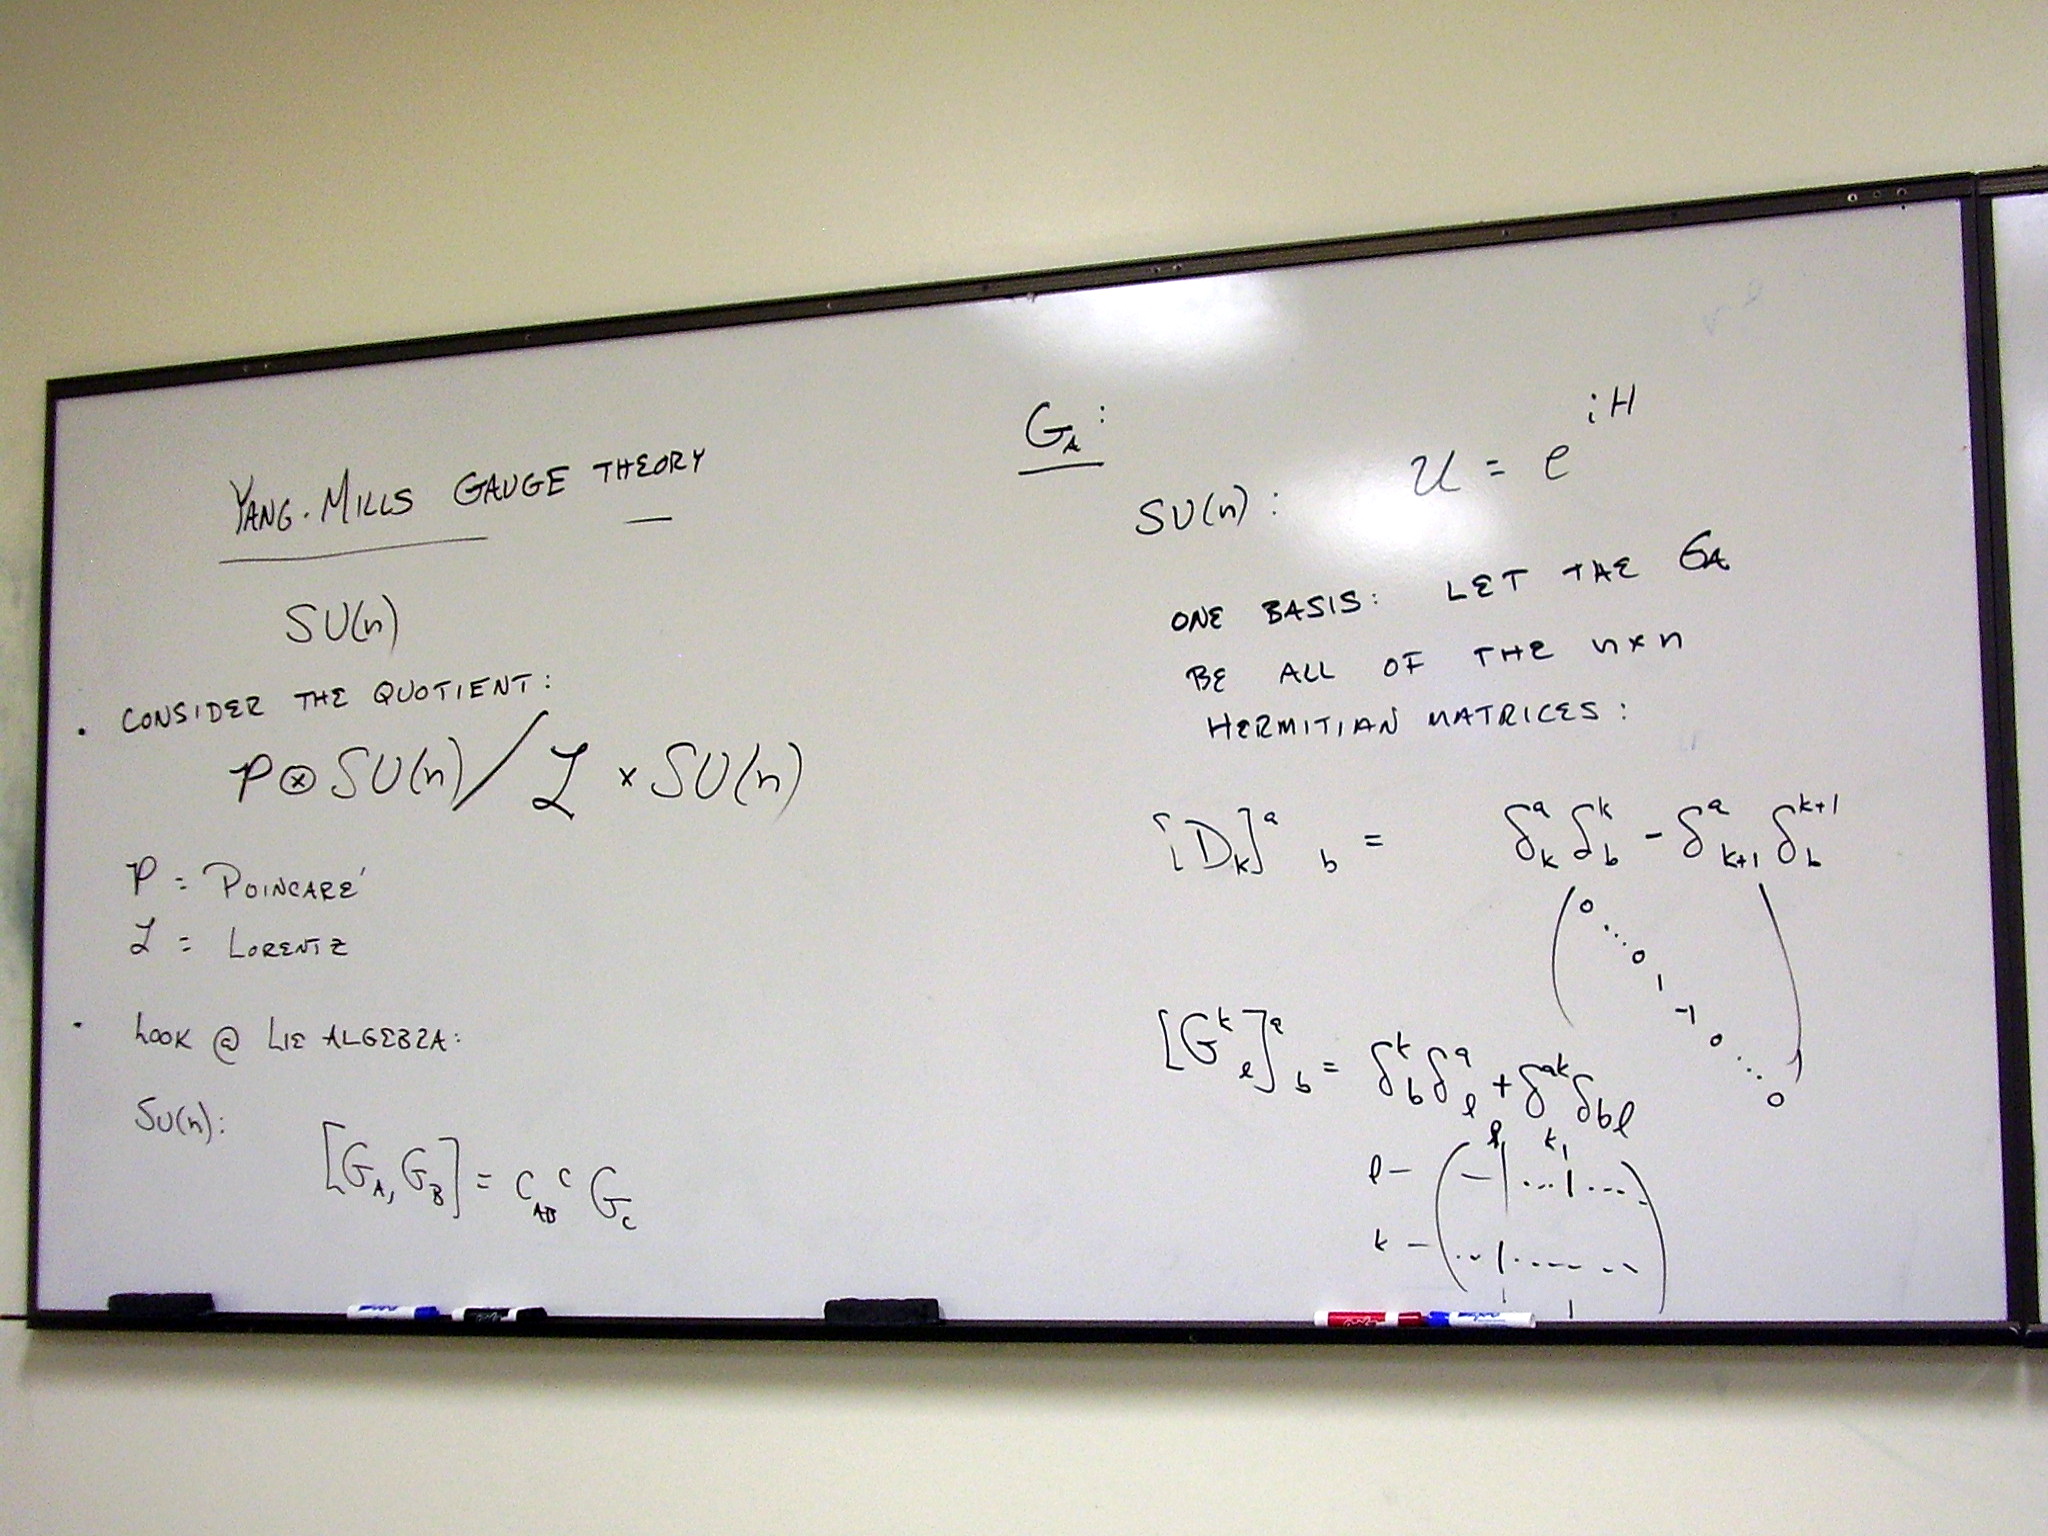 YANG-MILLS GAUGE THEORY
SU(n)
• CONSIDER THE QUOTIENT:
P ⊗ SU(n) / L × SU(n)
P = POINCARÉ
L = LORENTZ
• LOOK @ LIE ALGEBRA:
SU(n):
[G_A, G_B] = c_AB^C G_C
G_A:
SU(n): U = e^{iH}
ONE BASIS: LET THE G_A
BE ALL OF THE n×n
HERMITIAN MATRICES:
[D_k]^a_b = δ^a_k δ^k_b - δ^a_{k+1} δ^{k+1}_b
( 0 ⋱ 0 1 -1 0 ⋱ 0 )
[G^k_l]^a_b = δ^k_b δ^a_l + δ^{ak} δ_{bl}
l k
l – ( – | ... 1 .... )
k – ( ... 1 ....... )